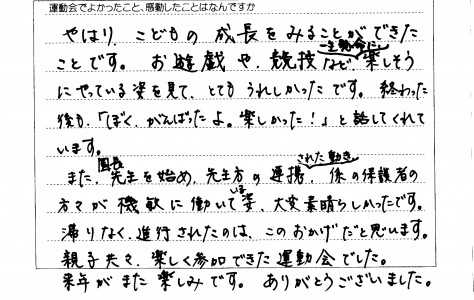 運動会でよかったこと、感動したことはなんですか
やはり、こどもの成長をみることができた
ことです。お遊戯や、競技など、一生懸命に楽しそう
にやっている姿を見て、とてもうれしかったです。終わった
後も、「ぼく、がんばったよ。楽しかった！」と話してくれて
います。
また、園長先生を始め、先生方の連携された動き、係の保護者の
方々が機敏に働いている姿、大変素晴らしかったです。
滞りなく、進行されたのは、このおかげだと思います。
親子共々、楽しく参加できた運動会でした。
来年がまた楽しみです。ありがとうございました。